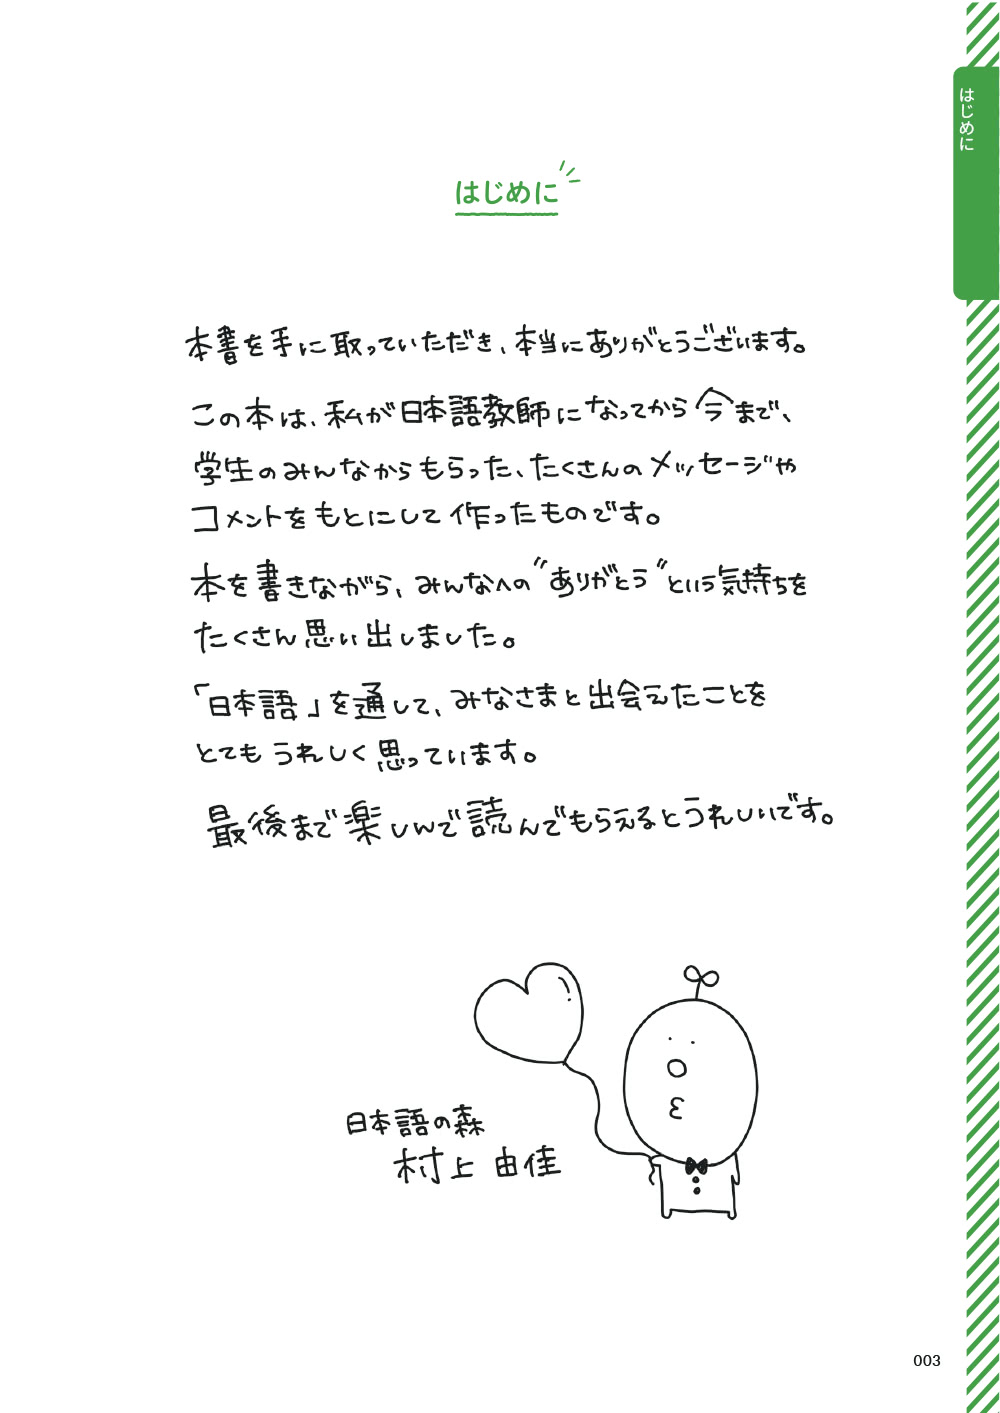 はじめに
はじめに
本書を手に取っていただき、本当にありがとうございます。
この本は、私が日本語教師になってから今まで、
学生のみんなからもらった、たくさんのメッセージや
コメントをもとにして作ったものです。
本を書きながら、みんなへの“ありがとう”という気持ちを
たくさん思い出しました。
「日本語」を通して、みなさまと出会えたことを
とてもうれしく思っています。
最後まで楽しんで読んでもらえるとうれしいです。
日本語の森
村上 由佳
003